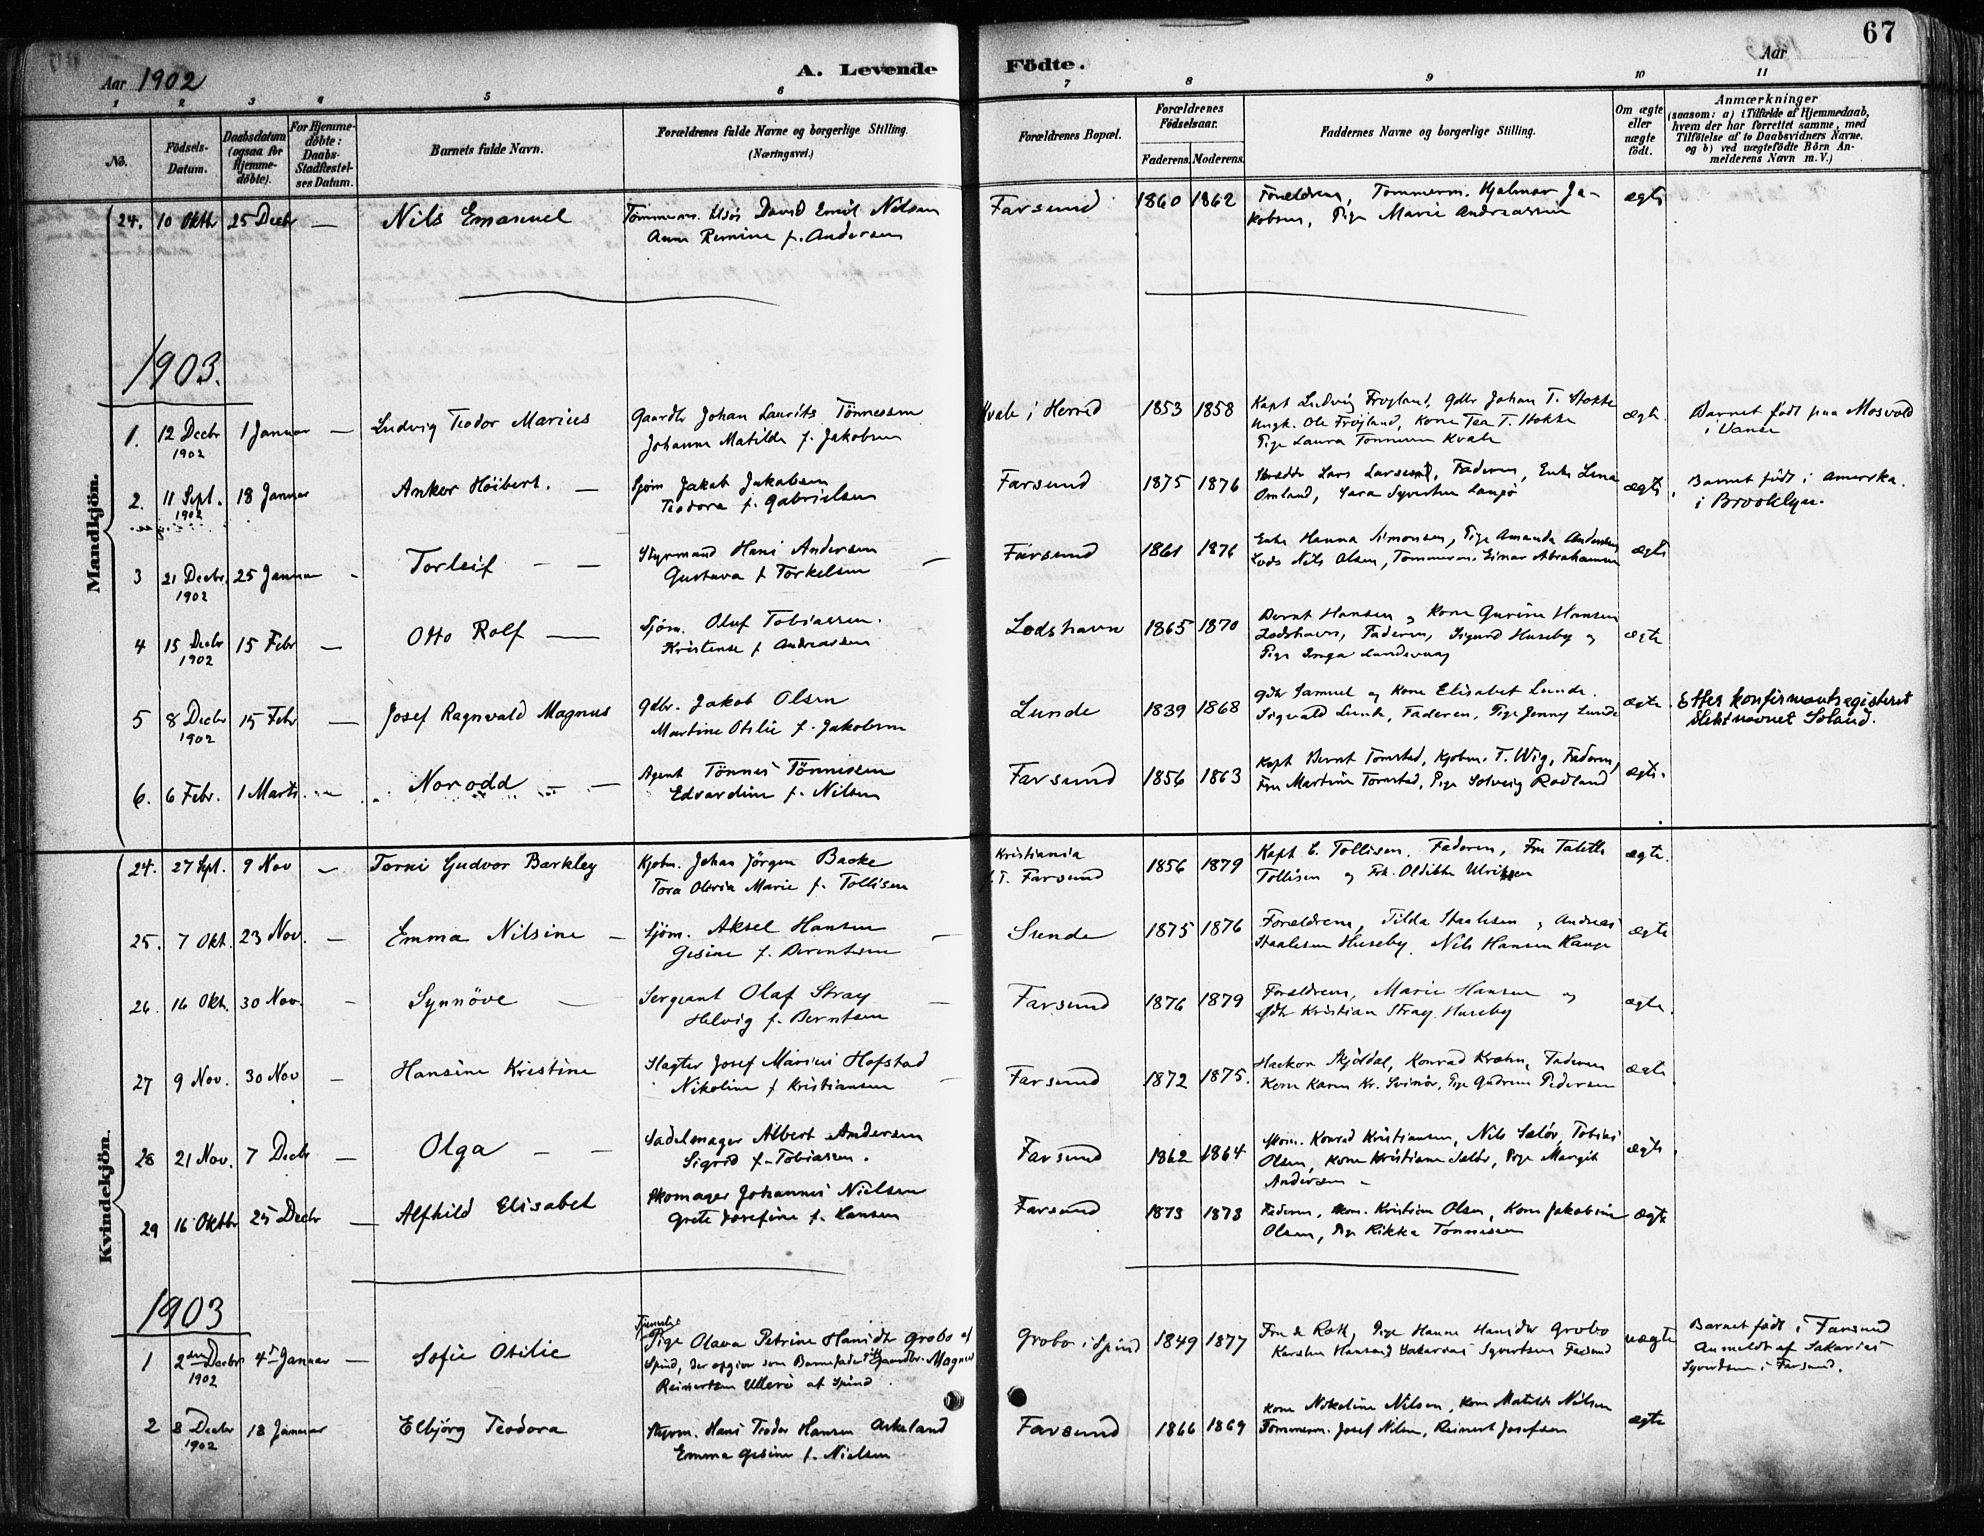 67
Aar 1902
A. Levende Födte.
Aar
1 2 3 4 5 6 7 8 9 10 11
No.
Födsels-Datum.
Daabsdatum (ogsaa for Hjemme-döbte).
For Hjemme-döbte: Daabs-Stadfæstel-ses Datum.
Barnets fulde Navn.
Forældrenes fulde Navne og borgerlige Stilling. (Næringsvei.)
Forældrenes Bopæl.
Forældrenes Födselsaar.
Faderens. Moderens.
Faddernes Navne og borgerlige Stilling.
Om ægte eller uægte födt.
Anmærkninger
(saasom: a) i Tilfælde af Hjemmedaab, hvem der har forrettet samme, med Tilföielse af to Daabsvidners Navne. og b) ved uægtefödte Börn An-melderens Navn m. V.)
Mandkjön.
24. 10 Oktbr 25 Decbr — Nils Emanuel
David Emil Nilsen
f. Andersen
Farsund 1860 1862
Forældrene, Tømmerm. Hjalmar Ja-
kobsen, Pige Marie Andreassen
ægte
1903.
1. 12 Decbr 1902 1 Januar — Ludvig Teodor Marius
Gaardbr Johan Laurits Tönnesen
Johanne Matilde f. Jakobsen
Kvale i Herred 1853 1858
Kapt Ludvig Fröyland, Gdbr Johan T. Stokke
Ungk. Ole Fröjland, Kone Tea T. Stokke
Pige Laura Tönnesen Kvale
ægte.
Barnet födt paa Mosvold
i Vanse
2. 11 Sept. 1902 18 Januar Anker Höibert. —
Sjöm Jakob Jakobsen
Teodora f. Gabrielsen
Farsund 1875 1876
Lars Larsen, Faderen, Enke Lina
Omland, Sara Syvertsen
ægte.
Barnet födt i Amerika.
i Brooklyn.
3 21 Decbr. 1902 25 Januar - Torleif — —
Styrmand Hans Andersen
Gustava f Torkelsen
Farsund 1861 1876
Enke Hanna Simonsen, Pige Amanda Andersen
Lods Nils Olsen, Tømmerm. Einar Abrahamsen
ægte
4 15 Decbr 1902 15 Febr — Otto Rolf —
Sjöm. Oluf Tobiassen.
Kristense f Andreassen
Lodshavn 1865 1870
Bernt Hansen og Kone Gurine Hansen
Lodshavn, Faderen, Sigurd Huseby og
Pige Inga
ægte
5 8 Decbr 1902 15 Febr — Josef Ragnvald Magnus
Gdbr. Jakob Olsen
Martine Otilie f. Jakobsen
Lunde 1839 1868
Gdbr Samuel og Kone Elisabet Lunde.
Sigvald Lunde, Faderen, Pige Jenny Lunde
ægte.
Efter konfirmantregisteret
slektsnavnet Soland.
6. 6 Febr. 1 Marts. Norodd —
Agent Tönnes Tönnesen
Edvardine f. Nilsen
Farsund 1856 1863
Kapt Bernt Tornstad, Kjøbm. T. Wig, Faderen,
Fru Martine Tornstad, Pige Solveig Rodland
ægte.
Kvindekjön.
24. 27 Sept. 9 Nov — Gudvor Barkley
Kjøbm. Johan Jörgen Backe
Tora Olivia Marie f. Tollisen
Kristiania
f. T. Farsund 1856 1879
Kapt C. Tollisen. Faderen, Fru
Tollisen og Frk.
ægte.
25. 7 Okt. 23 Nov. — Emma Nilsine —
Sjöm. Aksel Hansen
Gesine f. Berentsen
Sunde 1875 1876
Forældrene, Tilda Staalesen og Andreas
Staalesen Huseby. Nils Hansen Hauge
ægte
26. 16 Okt. 30 Nov. — Synnöve —
Sergeant Olaf Stray
Helvig f. Berntsen
Farsund 1876 1879
Forældrene, Marie Hansen og
Gdbr Kristian Stray Huseby
ægte.
27 9 Nov. 30 Nov — Hansine Kristine
Slagter Josef Marius Hofstad
Nikoline f Kristiansen
Farsund 1872 1875.
Haakon Skjöldal, Konrad Kræhn, Faderen
Kone Karen Kr. Svinör, Pige Gudrun Pedersen
ægte.
28 21 Nov. 7 Decb — Olga — —
Sadelmager Albert Andersen
Sigrid f. Tobiassen.
Farsund 1862 1864
Skom. Konrad Kristiansen, Nils Salör, Tobias
Olsen, Kone Kristiane Salör, Pige Margit
Andersen -
ægte.
29 16 Oktbr 25 Decbr — Alfhild Elisabet
Skomager Johannes Nielsen
Grete Josefine f. Hansen
Farsund 1873 1873
Faderen, Skom. Kristian Olsen, Kone Jakobine
Olsen, Pige Rikka Tönnessen
ægte
1903
1 2den Decbr 1902 4de Januar — Sofie Otilie
Tjeneste
Pige Olava Petrine Hansdtr Grobo af
Spind, der opgiver som Barnefader Gaardbr. Magnus
Reinertsen Ullerö af Spind.
Grobo i Spind 1849 1877
Fru de Rott, Pige Hanne Hansdtr Grobo
Karsten Hansen, Sakarias Syvertsen Farsund
uægte
Barnet födt i Farsund
Anmeldt af Sakarias
Syvertsen i Farsund.
2 8 Decbr 1902 18 Januar Elbjörg Teodora
Styrm. Hans Teodor Hansen Askeland
Emma Gesine f. Nielsen
Farsund 1866 1869
Kone Nikoline Nilsen, Kone Matilde Nilsen
Tømmerm. Josef Nilsen, Reinert Josefsen
ægte